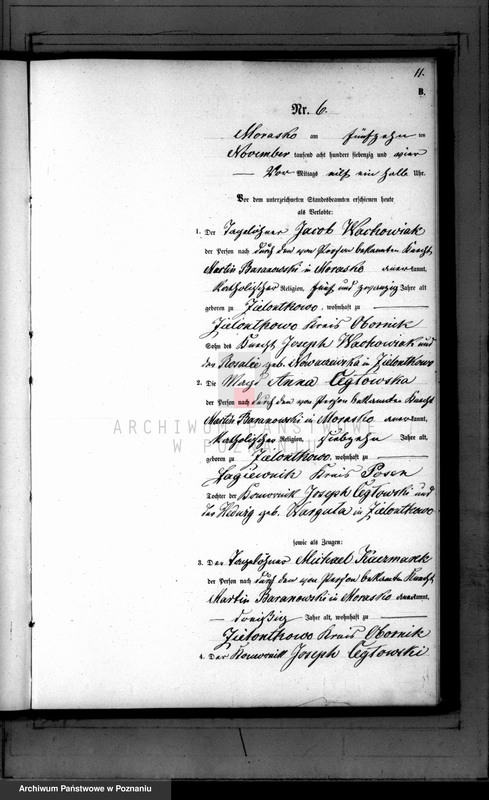 11.
B.
Nr. 6.
Morasko am fünfzehn ten
November tausend acht hundert siebenzig und vier
Vor Mittags eilf ein halb Uhr.
Vor dem unterzeichneten Standesbeamten erschienen heute
als Verlobte:
1. Der Tagelöhner Jacob Wachowiak
der Person nach durch den von Person bekannten Knecht
Martin Baranowski in Morasko anerkannt,
katholischer Religion, fünf und zwanzig Jahre alt
geboren zu Zielontkowo, wohnhaft zu
Zielontkowo Kreis Obornik
Sohn des Knecht Joseph Wachowiak und
der Rosalie geb. in Zielontkowo
2. Die Magd Anna Cegłowska
der Person nach durch den von Person bekannten Knecht
Martin Baranowski in Morasko anerkannt,
katholischer Religion, siebzehn Jahre alt,
geboren zu Zielontkowo, wohnhaft zu
Łagiewnik Kreis Posen
Tochter der Komornik Joseph Cegłowski und
der Hedwig geb. Warguła in Zielontkowo
sowie als Zeugen:
3. Der Tagelöhner Michael Kaczmarek
der Person nach durch den von Person bekannten Knecht
Martin Baranowski in Morasko anerkannt,
dreißig Jahre alt, wohnhaft zu
Zielontkowo Kreis Obornik
4. Der Komornik Joseph Cegłowski
ARCHIWUM PAŃSTWOWE
W POZNANIU
Archiwum Państwowe w Poznaniu